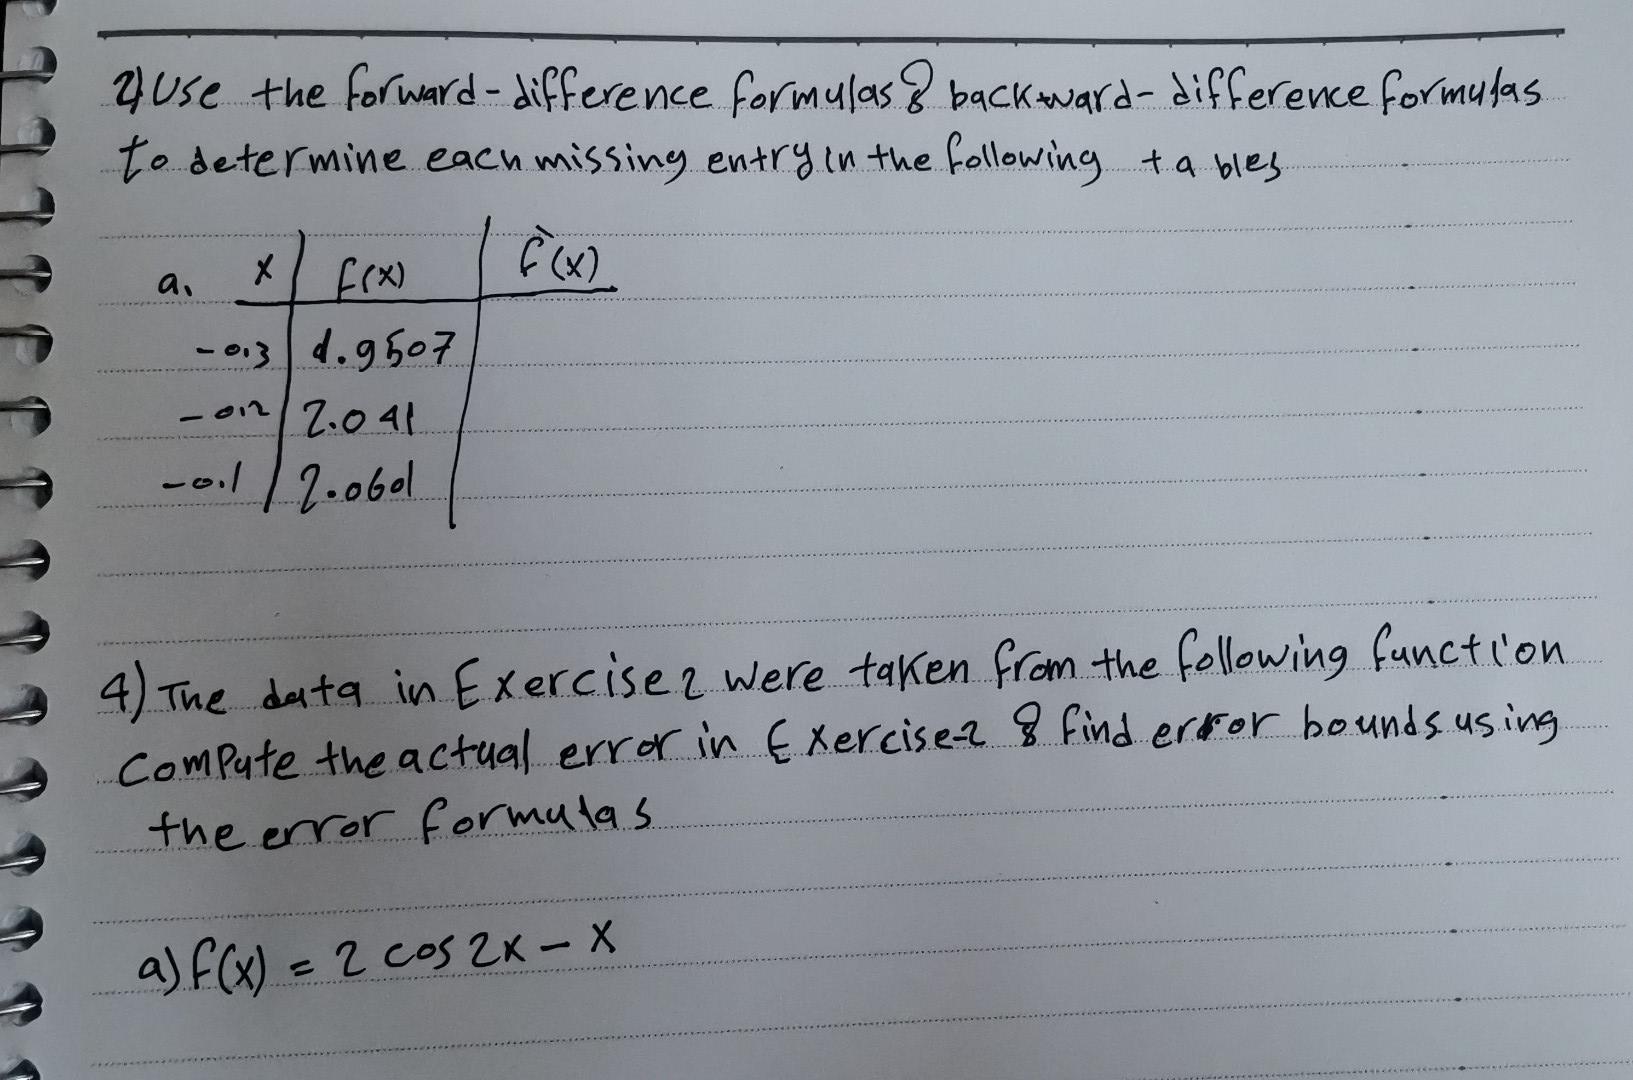 2) Use the forward-difference formulas & backward-difference formulas
to determine each missing entry in the following tables
a. x f(x) f`(x)
-0.3 1.9507
-0.2 2.041
-0.1 2.0601
4) The data in Exercise 2 were taken from the following function
compute the actual error in Exercise-2 & find error bounds using
the error formulas
a) f(x) = 2 cos 2x - x